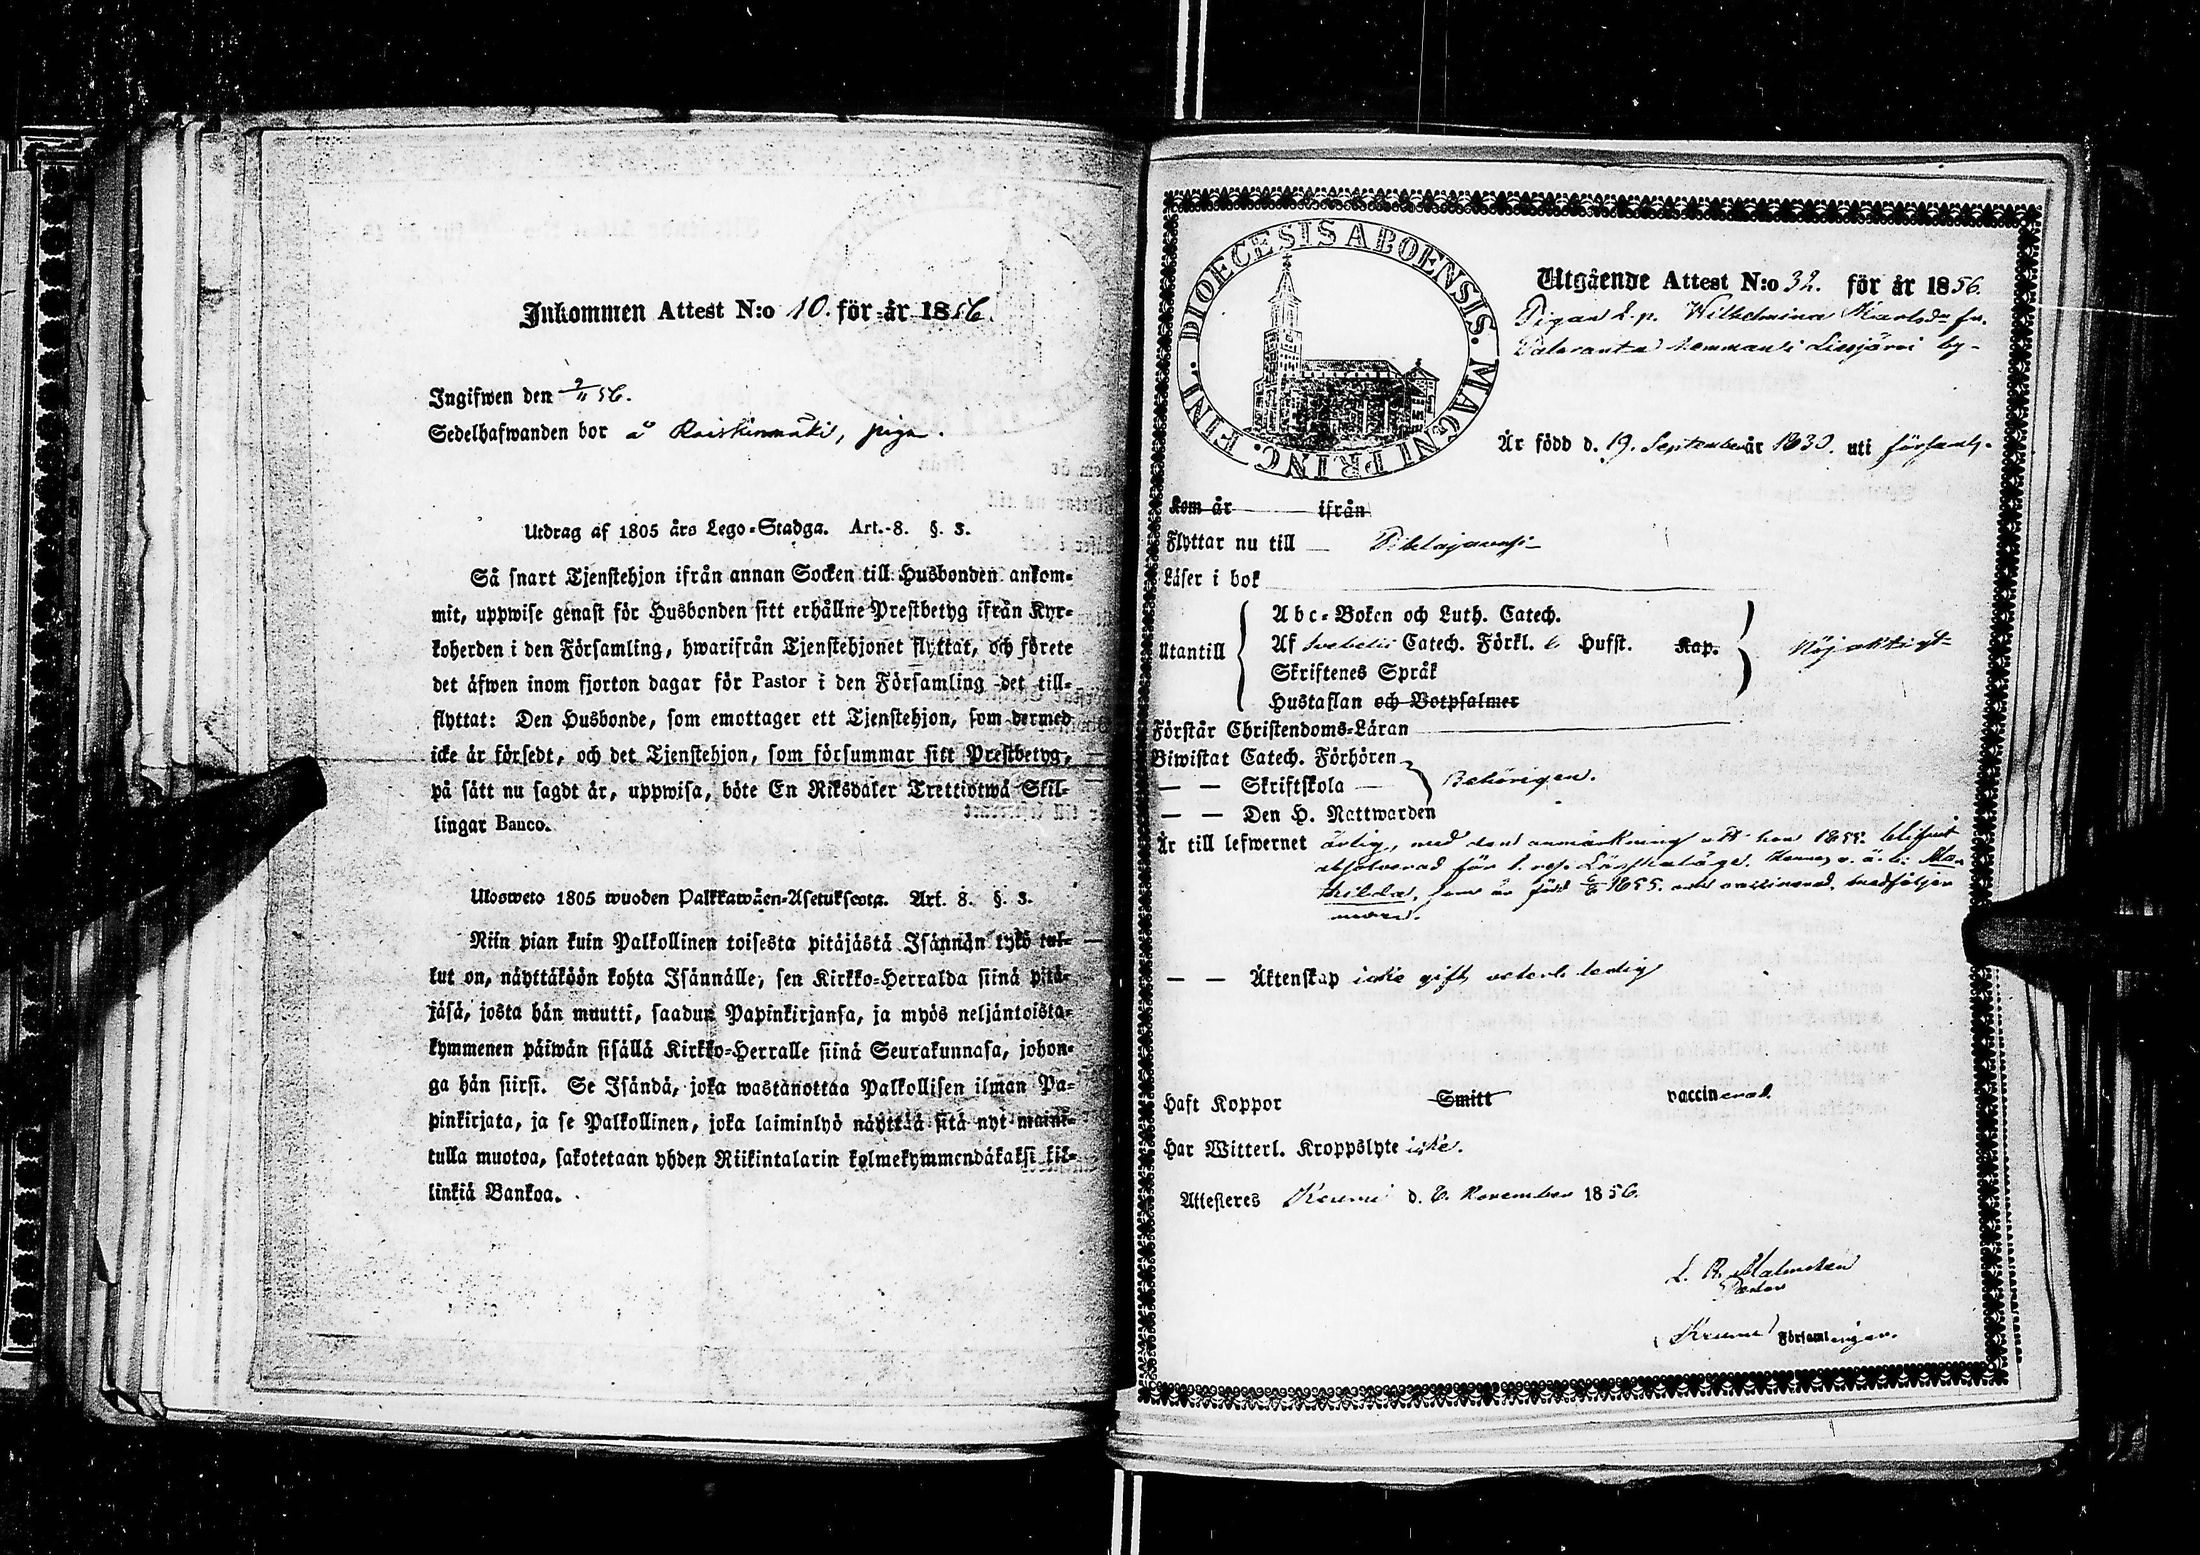 Inkommen Attest N:o 10. för år 1856.
Ingifwen den 2/11 56.
Sedelhafwanden bor å Raiskinmäki, piga.
Utdrag af 1805 års Lego-Stadga. Art. 8. §. 3.
Så snart Tjenstehjon ifrån annan Socken till Husbonden ankom-
mit, uppwise genast för Husbonden sitt erhållne Prestbetyg ifrån Kyr-
koherden i den Församling, hwarifrån Tjenstehjonet flyttat, och förete
det äfwen inom fjorton dagar för Pastor i den Församling det till-
flyttat: Den Husbonde, som emottager ett Tjenstehjon, som dermed
icke är försedt, och det Tjenstehjon, som försummar sitt Prestbetyg,
på sätt nu sagdt är, uppwisa, böte En Riksdaler Trettiotwå Skil-
lingar Banco.
Ulosweto 1805 wuoden Palkkawäen-Asetuksesta. Art. 8. §. 3.
Niin pian kuin Palkollinen toisesta pitäjästä Isännän tykö tul-
lut on, näyttäköön kohta Isännälle, sen Kirkko-Herralda siinä pitä-
jäsä, josta hän muutti, saadun Papinkirjansa, ja myös neljäntoista-
kymmenen päiwän sisällä Kirkko-Herralle siinä Seurakunnasa, johon-
ga hän siirsi. Se Isändä, joka wastanottaa Palkollisen ilman Pa-
pinkirjata, ja se Palkollinen, joka laiminlyö näyttää sitä nyt maini-
tulla muotoa, sakotetaan yhden Riikintalarin kolmekymmendäkaksi kil-
linkiä Bankoa.
DIOECESIS ABOENSIS. MAGNI PRINC. FINL.
Utgående Attest N:o 32. för år 1856.
Pigan L.p. Wilhelmina Karlsdr fr.
hemman i by
Är född d. 19. September år 1830. uti församl.
Kom år ifrån
Flyttar nu till Pihlajavesi
Läser i bok
Abc-Boken och Luth. Catech.
Utantill Af Svebelii Catech. Förkl. 6 Hufst. Kap. Nöjaktigt
Skriftenes Språk
Hustaflan och Botpsalmer
Förstår Christendoms-Läran
Biwistat Catech. Förhören
— — Skriftskola Behörigen.
— — Den H. Nattwarden
Är till lefwernet ärlig, med den anmärkning att hon 1855. blifvit
absolverad för 1. resa Lägersmål. Hennes o. ä. b. Ma-
thilda, som är född 1855. och vaccinerad, medföljer
modren.
— — Äktenskap icke gift, utan ledig
Haft Koppor Smitt vaccinerad.
Har Witterl. Kroppslyte icke.
Attesteras Keuru d. 6. November 1856.
L. R. Malmstén
Pastor
i Keuru Församlingen.